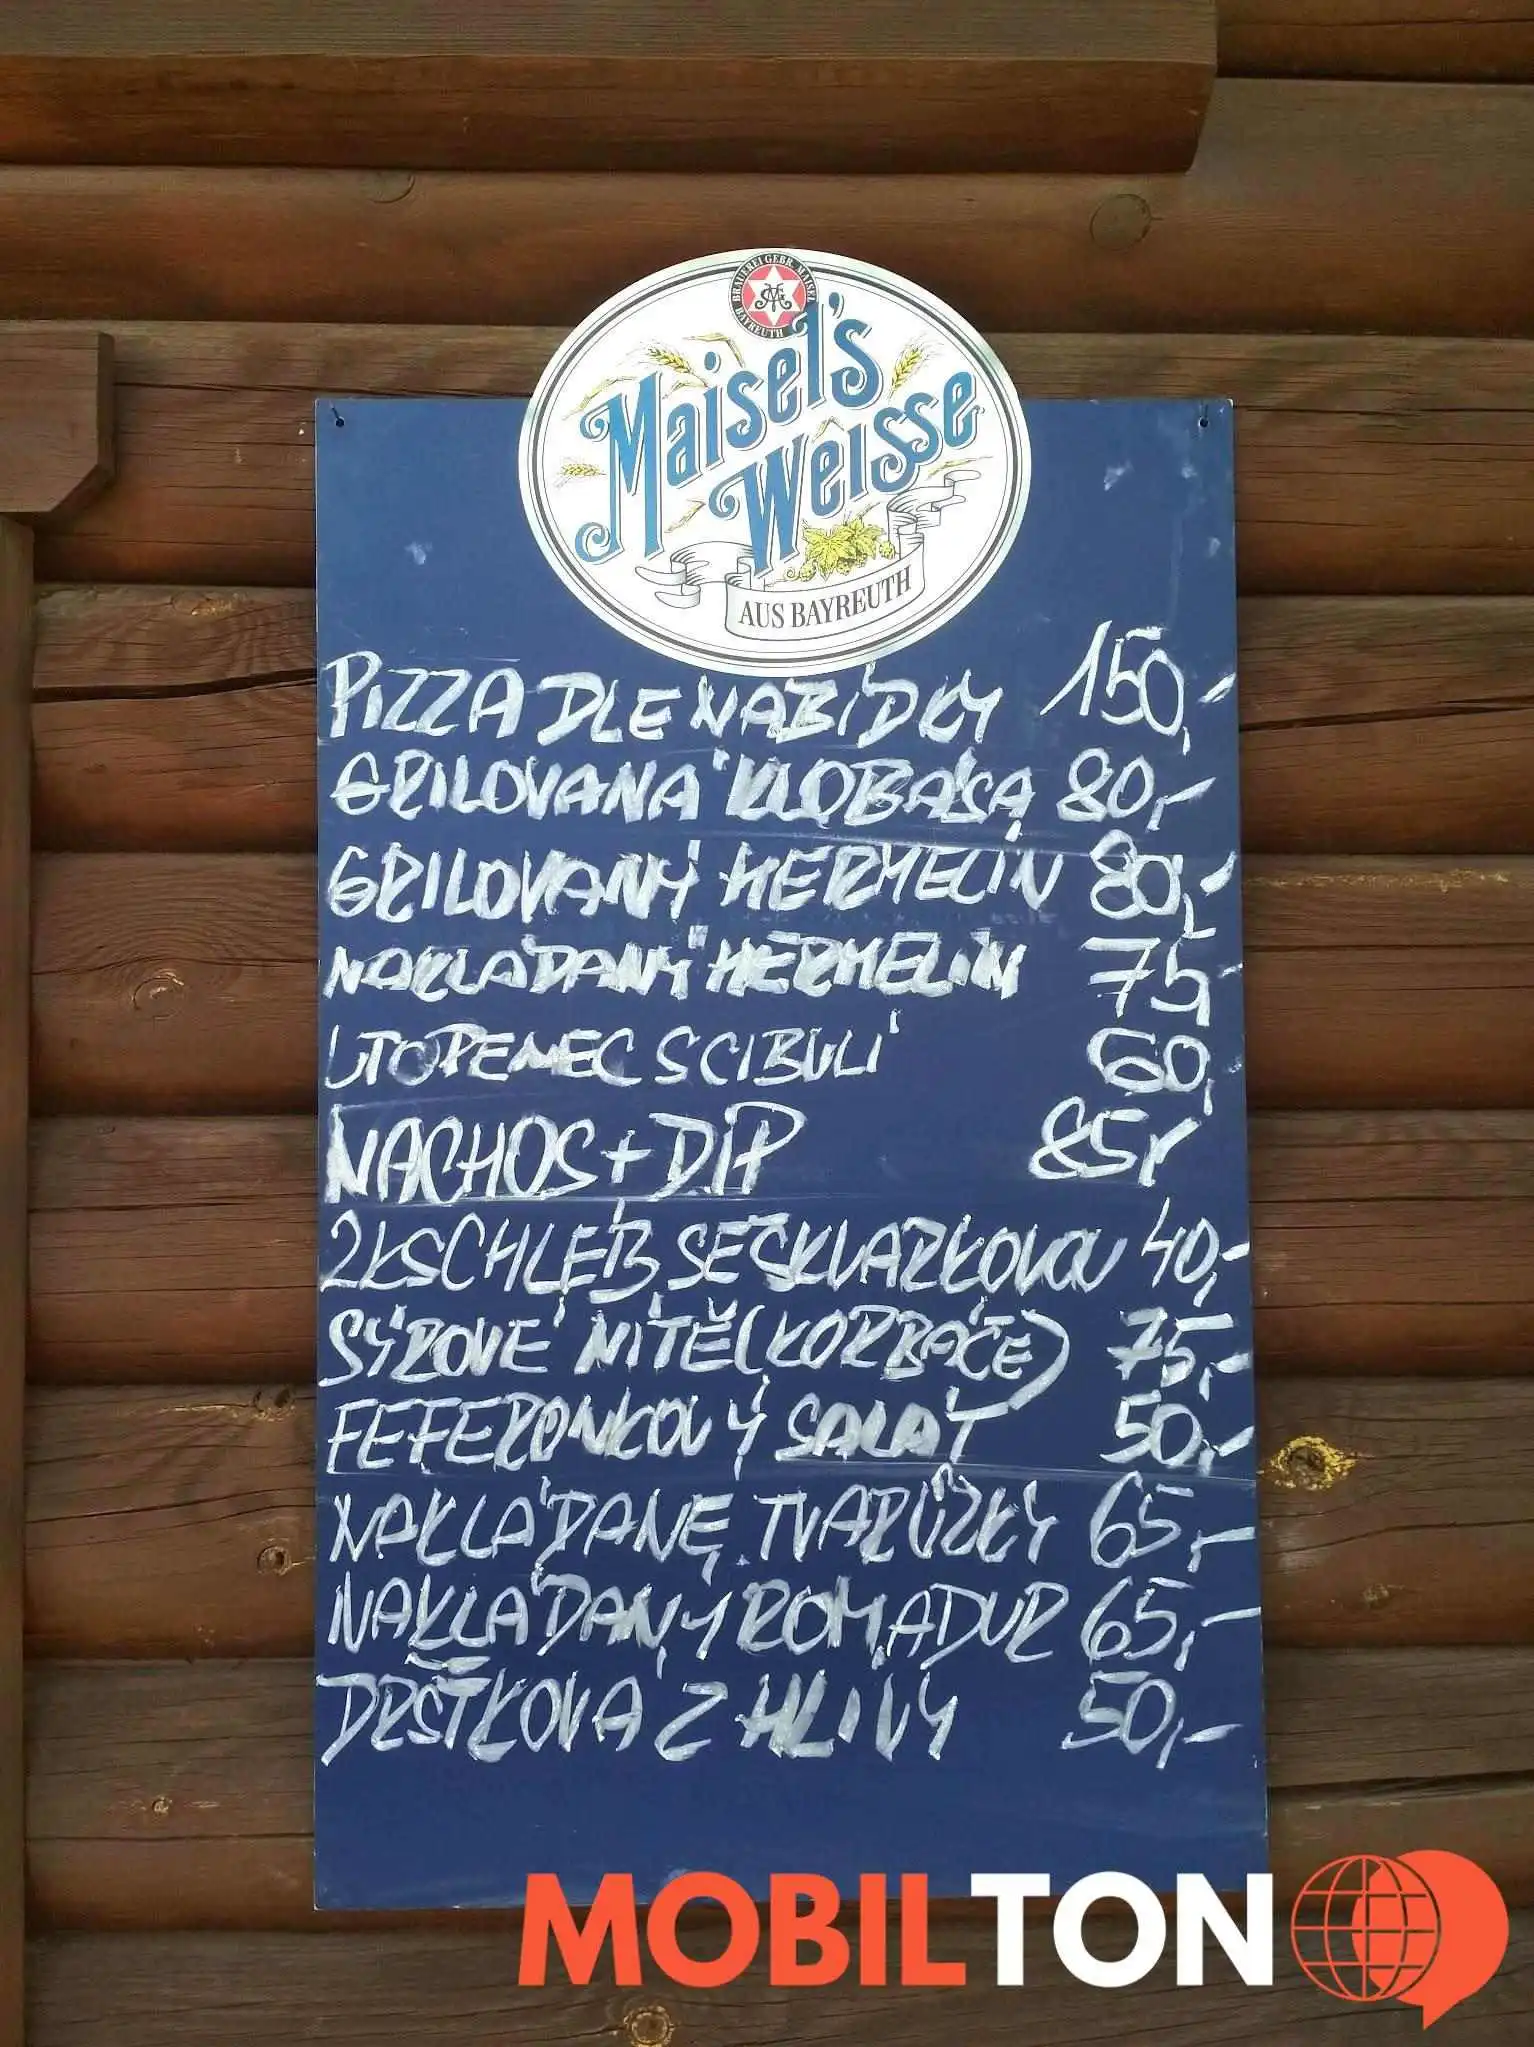 BRAUEREI GEBR. MAISEL
BAYREUTH
Maisel's
Weisse
AUS BAYREUTH
PIZZA DLE NABÍDKY 150,-
GRILOVANÁ KLOBÁSA 80,-
GRILOVANÝ HERMELÍN 80,-
NAKLÁDANÝ HERMELÍN 75,-
UTOPENEC S CIBULÍ 60,-
NACHOS + DIP 85,-
2KS CHLÉB SE ŠKVARKOVOU 40,-
SÝROVÉ NITĚ (KORBÁČE) 75,-
FEFERONKOVÝ SALÁT 50,-
NAKLÁDANÉ TVARŮŽKY 65,-
NAKLÁDANÝ ROMADUR 65,-
DRŠŤKOVÁ Z HLIVY 50,-
MOBILTON